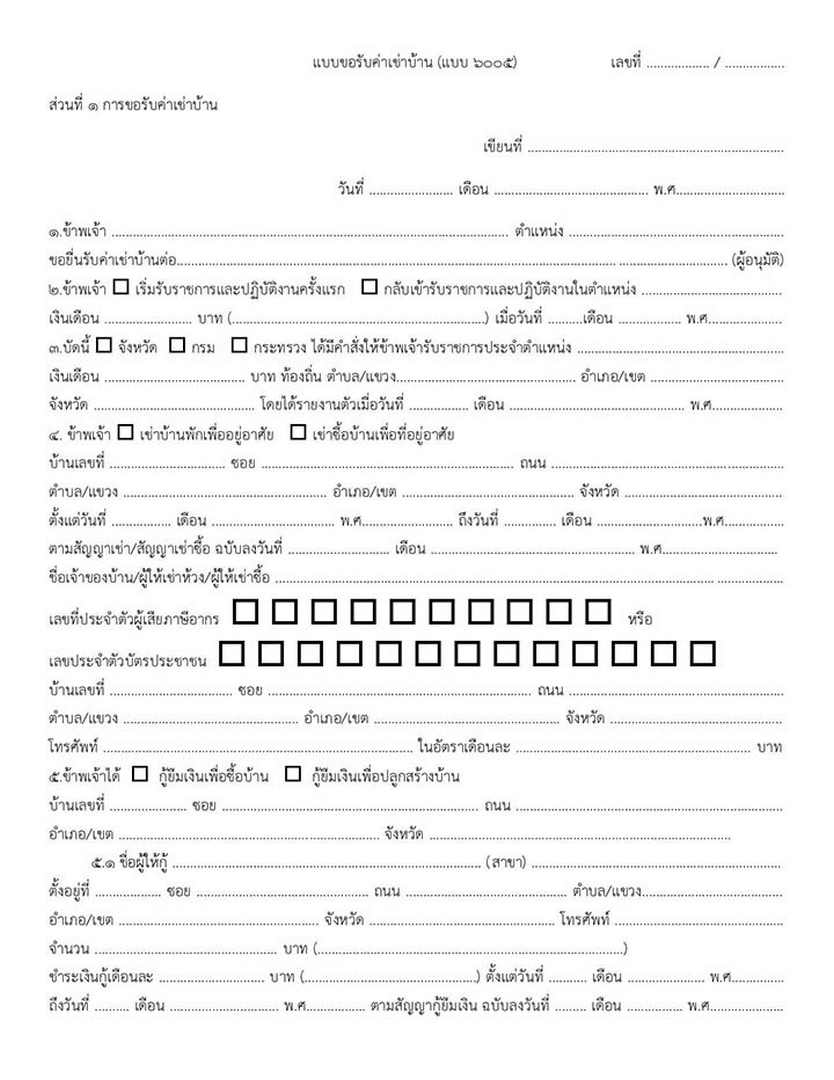 แบบขอรับค่าเช่าบ้าน (แบบ ๖๐๐๕) เลขที่ .................. / .................
ส่วนที่ ๑ การขอรับค่าเช่าบ้าน
เขียนที่ ........................................................................
วันที่ ........................ เดือน ........................................... พ.ศ...............................
๑.ข้าพเจ้า ................................................................................................................ ตำแหน่ง .............................................................
ขอยื่นรับค่าเช่าบ้านต่อ............................................................................................................................ ............................... (ผู้อนุมัติ)
๒.ข้าพเจ้า ☐ เริ่มรับราชการและปฏิบัติงานครั้งแรก ☐ กลับเข้ารับราชการและปฏิบัติงานในตำแหน่ง ........................................
เงินเดือน ......................... บาท (........................................................................) เมื่อวันที่ ..........เดือน .................. พ.ศ.....................
๓.บัดนี้ ☐ จังหวัด ☐ กรม ☐ กระทรวง ได้มีคำสั่งให้ข้าพเจ้ารับราชการประจำตำแหน่ง ..........................................................
เงินเดือน ........................................ บาท ท้องถิ่น ตำบล/แขวง.................................................. อำเภอ/เขต ......................................
จังหวัด .............................................. โดยได้รายงานตัวเมื่อวันที่ ................. เดือน .................................................. พ.ศ....................
๔. ข้าพเจ้า ☐ เช่าบ้านพักเพื่ออยู่อาศัย ☐ เช่าซื้อบ้านเพื่อที่อยู่อาศัย
บ้านเลขที่ ................................. ซอย ........................................................................ ถนน ..................................................................
ตำบล/แขวง .......................................................... อำเภอ/เขต ................................................ จังหวัด .............................................
ตั้งแต่วันที่ ................. เดือน ................................... พ.ศ.......................... ถึงวันที่ ............... เดือน ..............................พ.ศ.................
ตามสัญญาเช่า/สัญญาเช่าซื้อ ฉบับลงวันที่ ............................. เดือน .......................................................... พ.ศ................................
ชื่อเจ้าของบ้าน/ผู้ให้เช่าห้วง/ผู้ให้เช่าซื้อ ............................................................................................................................ ...................
เลขที่ประจำตัวผู้เสียภาษีอากร ☐ ☐ ☐ ☐ ☐ ☐ ☐ ☐ ☐ ☐ หรือ
เลขประจำตัวบัตรประชาชน ☐ ☐ ☐ ☐ ☐ ☐ ☐ ☐ ☐ ☐ ☐ ☐ ☐
บ้านเลขที่ ................................... ซอย .......................................................................... ถนน .............................................................
ตำบล/แขวง .................................................. อำเภอ/เขต .................................................... จังหวัด .................................................
โทรศัพท์ ....................................................................................... ในอัตราเดือนละ .................................................................. บาท
๕.ข้าพเจ้าได้ ☐ กู้ยืมเงินเพื่อซื้อบ้าน ☐ กู้ยืมเงินเพื่อปลูกสร้างบ้าน
บ้านเลขที่ ...................... ซอย ......................................................................... ถนน ............................................................................
อำเภอ/เขต .......................................................................... จังหวัด .....................................................................................
๕.๑ ชื่อผู้ให้กู้ ....................................................................................... (สาขา) ......................................................................
ตั้งอยู่ที่ ................... ซอย ................................................. ถนน .............................................. ตำบล/แขวง........................................
อำเภอ/เขต ......................................................... จังหวัด ..................................................... โทรศัพท์ ...............................................
จำนวน .................................................... บาท (.......................................................................................)
ชำระเงินกู้เดือนละ .............................. บาท (.................................................) ตั้งแต่วันที่ ........... เดือน ...................... พ.ศ...............
ถึงวันที่ .......... เดือน ............................... พ.ศ....................... ตามสัญญากู้ยืมเงิน ฉบับลงวันที่ ......... เดือน ................ พ.ศ.....................